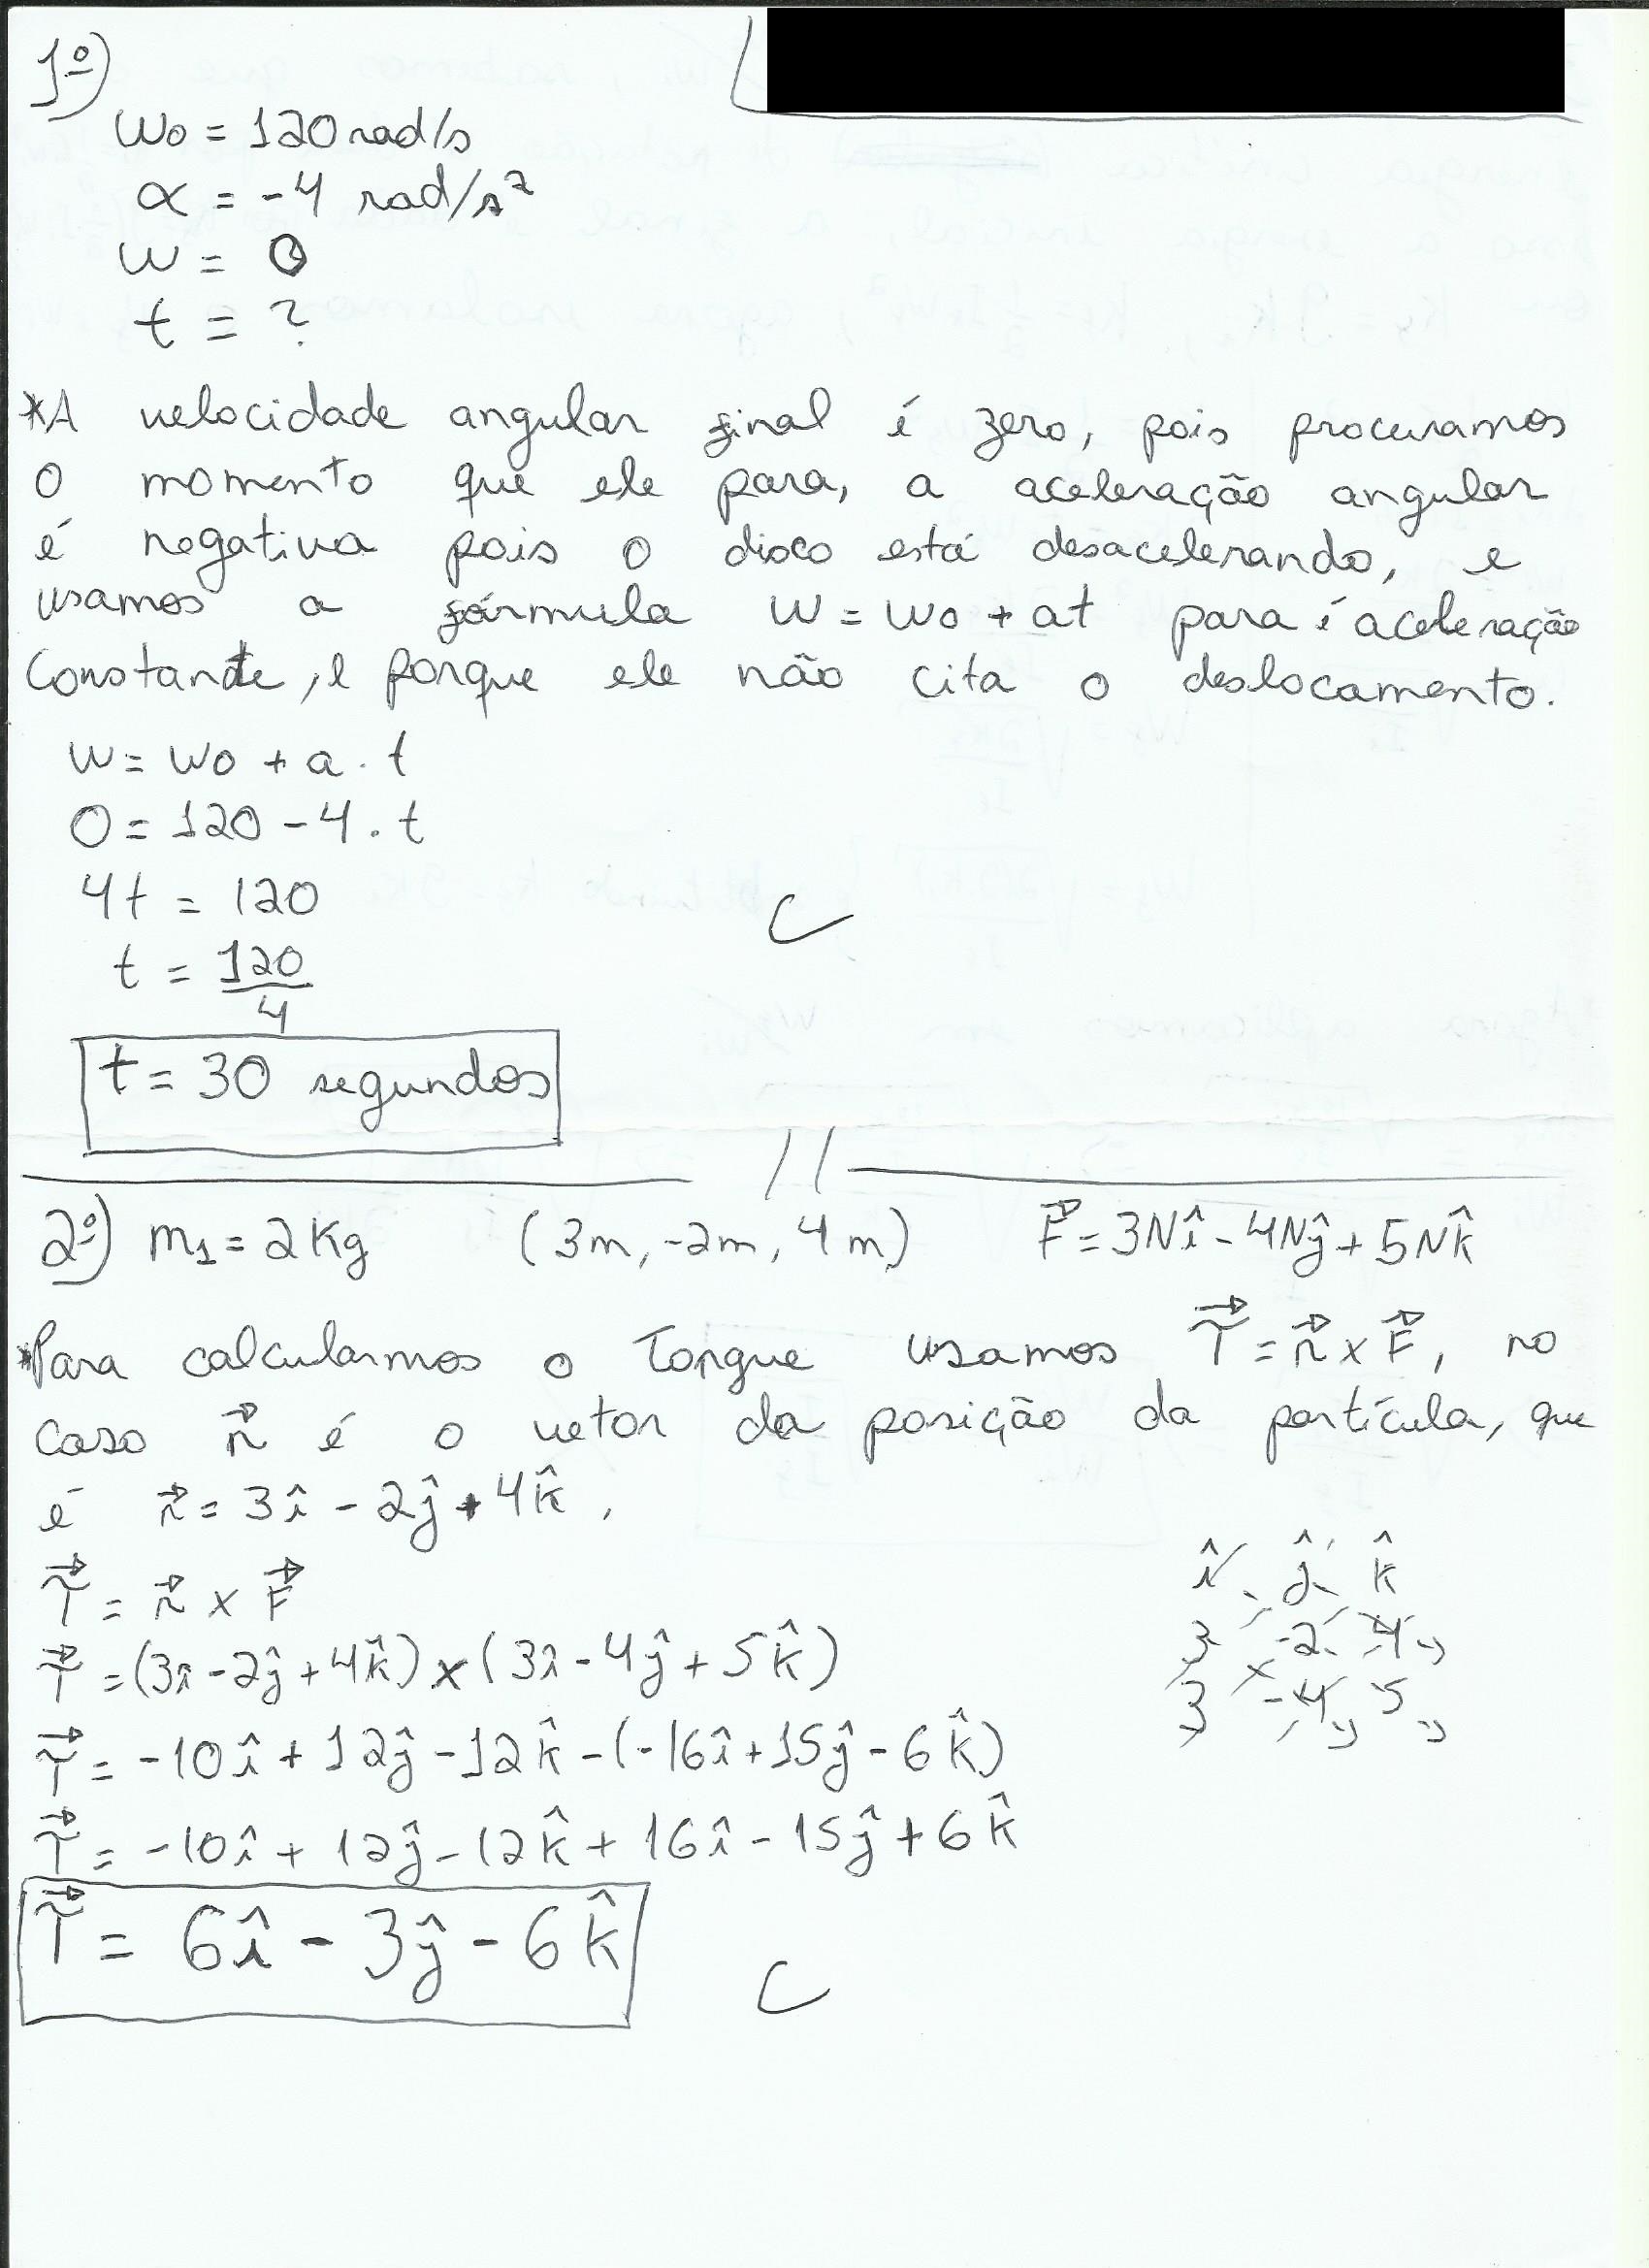 1º)
W0 = 120 rad/s
α = -4 rad/s²
W = 0
t = ?
*A velocidade angular final é zero, pois procuramos
o momento que ele para, a aceleração angular
é negativa pois o disco está desacelerando, e
usamos a fórmula W = W0 + at para é aceleração
constante, e porque ele não cita o deslocamento.
W = W0 + a . t
0 = 120 - 4 . t
4t = 120
t = 120/4
C
t = 30 segundos
//
2º) m₁ = 2Kg (3m, -2m, 4m) F⃗ = 3Nî - 4Nĵ + 5Nk̂
*Para calcularmos o Torque usamos T⃗ = r⃗ x F⃗, no
caso r⃗ é o vetor da posição da partícula, que
é r⃗ = 3î - 2ĵ + 4k̂,
T⃗ = r⃗ x F⃗
T⃗ = (3î - 2ĵ + 4k̂) x (3î - 4ĵ + 5k̂)
T⃗ = -10î + 12ĵ - 12k̂ - (-16î + 15ĵ - 6k̂)
T⃗ = -10î + 12ĵ - 12k̂ + 16î - 15ĵ + 6k̂
T⃗ = 6î - 3ĵ - 6k̂
C
î ĵ k̂
3 -2 4
3 -4 5